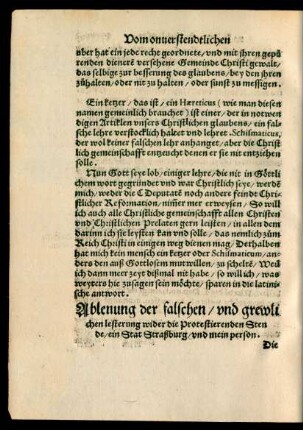 Vom onuerstendtlichen
uber hat ein jede recht geordnete/ vnd mit jhren gepü
renden dienern versehene Gemeinde Christi gewalt/
das selbige zur besserung des glaubens/ bey den jhren
zůhalten/ oder nit zu halten/ oder sunst zu messigen.
Ein ketzer/ das ist/ ein Hæreticus (wie man diesen
namen gemeinlich brauchet) ist einer/ der in notwen
digen Artiklen vnsers Christlichen glaubens/ ein fal
sche lehre verstocklich haltet vnd lehret. Schismaticus,
der wol keiner falschen lehr anhanget/ aber die Christ
lich gemeinschafft entzeucht denen er sie nit entziehen
solle.
Nun Gott seye lob/ einiger lehre/ die nit in Götlich
chem wort gegründet vnd war Christlich seye/ werdē
mich/ weder die C Deputatē noch andere frinde Chri
stlicher Reformation/ nimer mer erweysen/ So will
ich auch alle Christliche gemeinschafft allen Christen
vnd Christlichen Prelaten gern leisten/ in allem dem
darinn ich sie leysten kan vnd solle/ das nemlich zům
Reich Christi in einigen weg dienen mag/ Derhalben
hat mich kein mensch ein ketzer oder Schismaticum/ an-
ders den auß Gottlosem mutwillen/ zu scheltē/ Weil
ich dann meer zeyt dißmal nit habe/ so will ich/ was
weyters hie zu sagen sein möchte/ sparen in die latini-
sche antwort.
Ablenung der falschen/ vnd grewli
chen lesterung wider die Protestierenden Sten
de/ ein Stat Straßburg/ vnd mein person.
Die